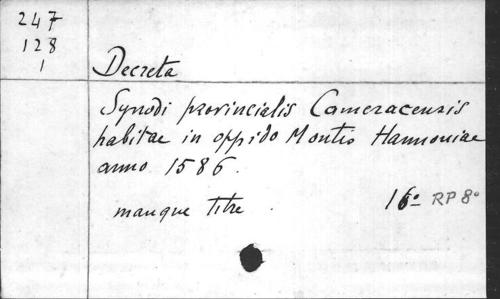 247
128
1
Decreta
Synodi provincialis Cameracensis
habitae in oppido Montis Hannoniae
anno 1586.
manque titre.
16º RP 8º